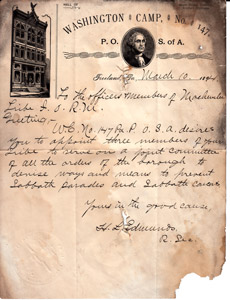 HALL OF
WASHINGTON CAMP, No. 147,
P. O. S. of A.
Freeland, Pa. March 10, 1894
To the officers & Members of
Tribe I. O. R. M.
Greeting,-
W. C. No. 147 P. O. S. A. desires
you to appoint three members of your
tribe to serve on a joint committee
of all the orders of the borough to
devise ways and means to prevent
Sabbath parades and Sabbath
Yours in the good cause
H. L. Edmunds,
R. Sec.